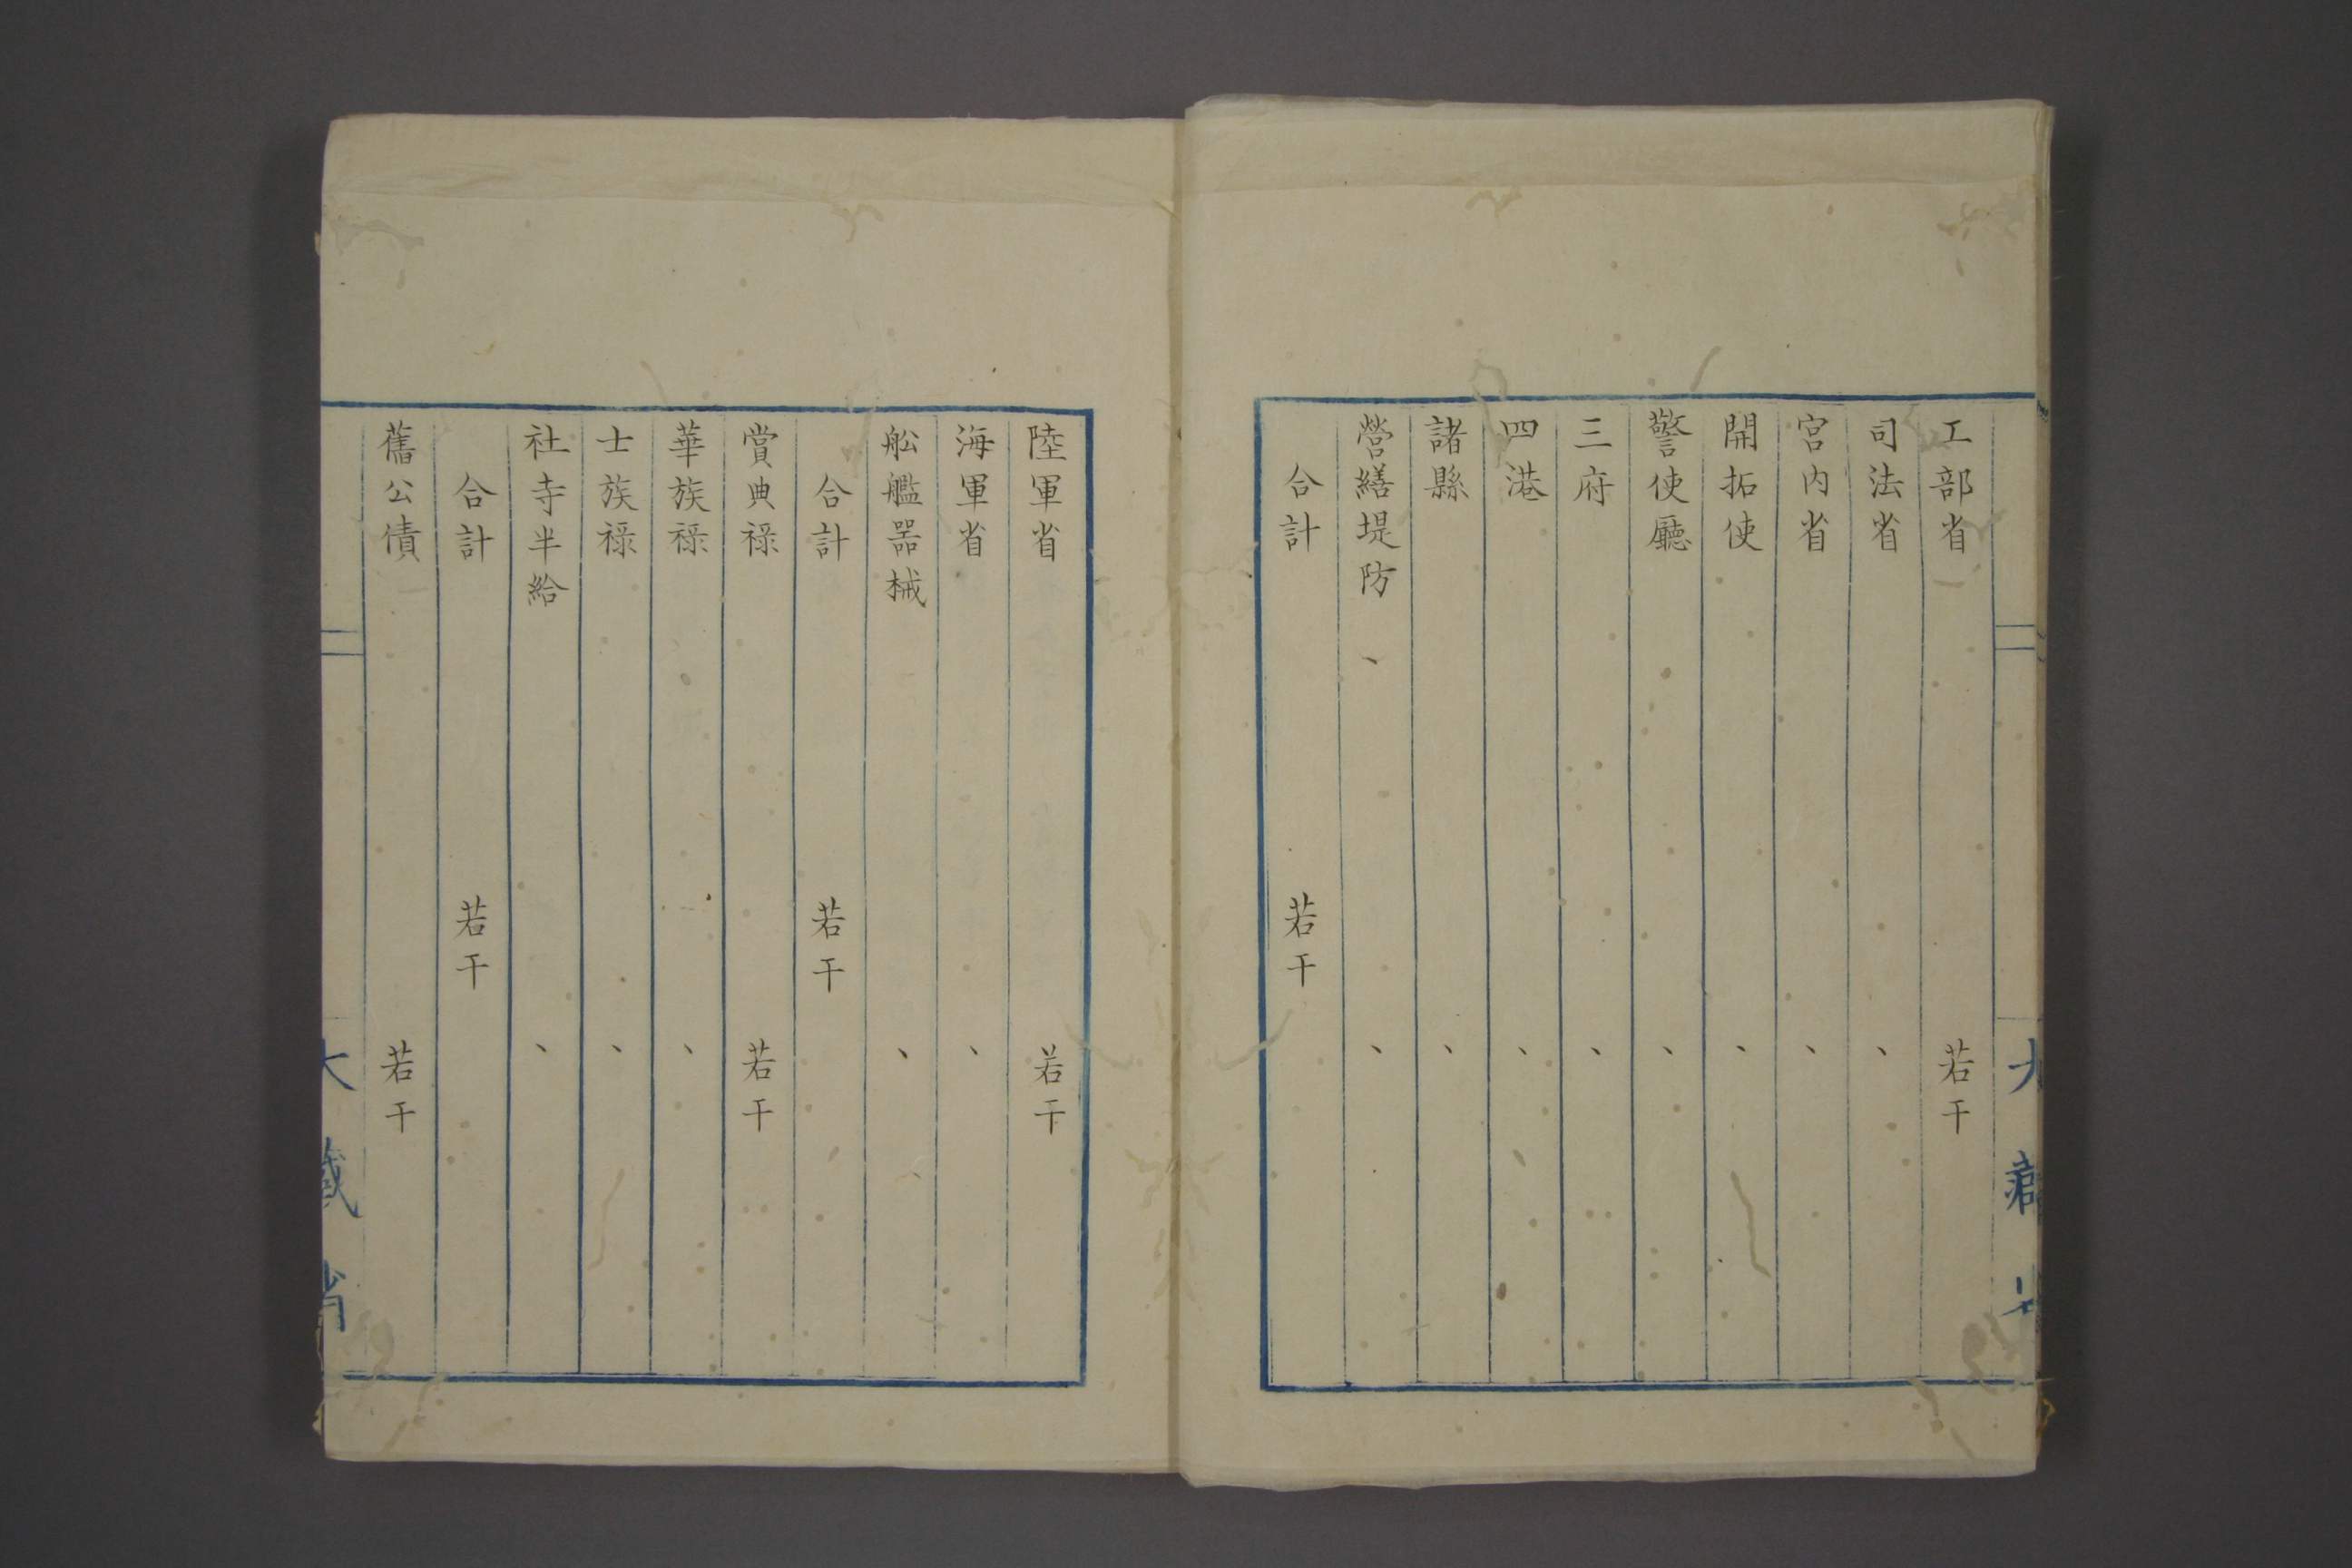 工部省　若干
司法省　、
宮内省　、
開拓使　、
警使廳　、
三府　、
四港　、
諸縣　、
營繕堤防、　、
合計　若干
陸軍省　若干
海軍省　、
舩艦器械　、
合計　若干
賞典祿　若干
華族祿　、
士族祿　、
社寺半給　、
合計　若干
舊公債　若干
大藏省